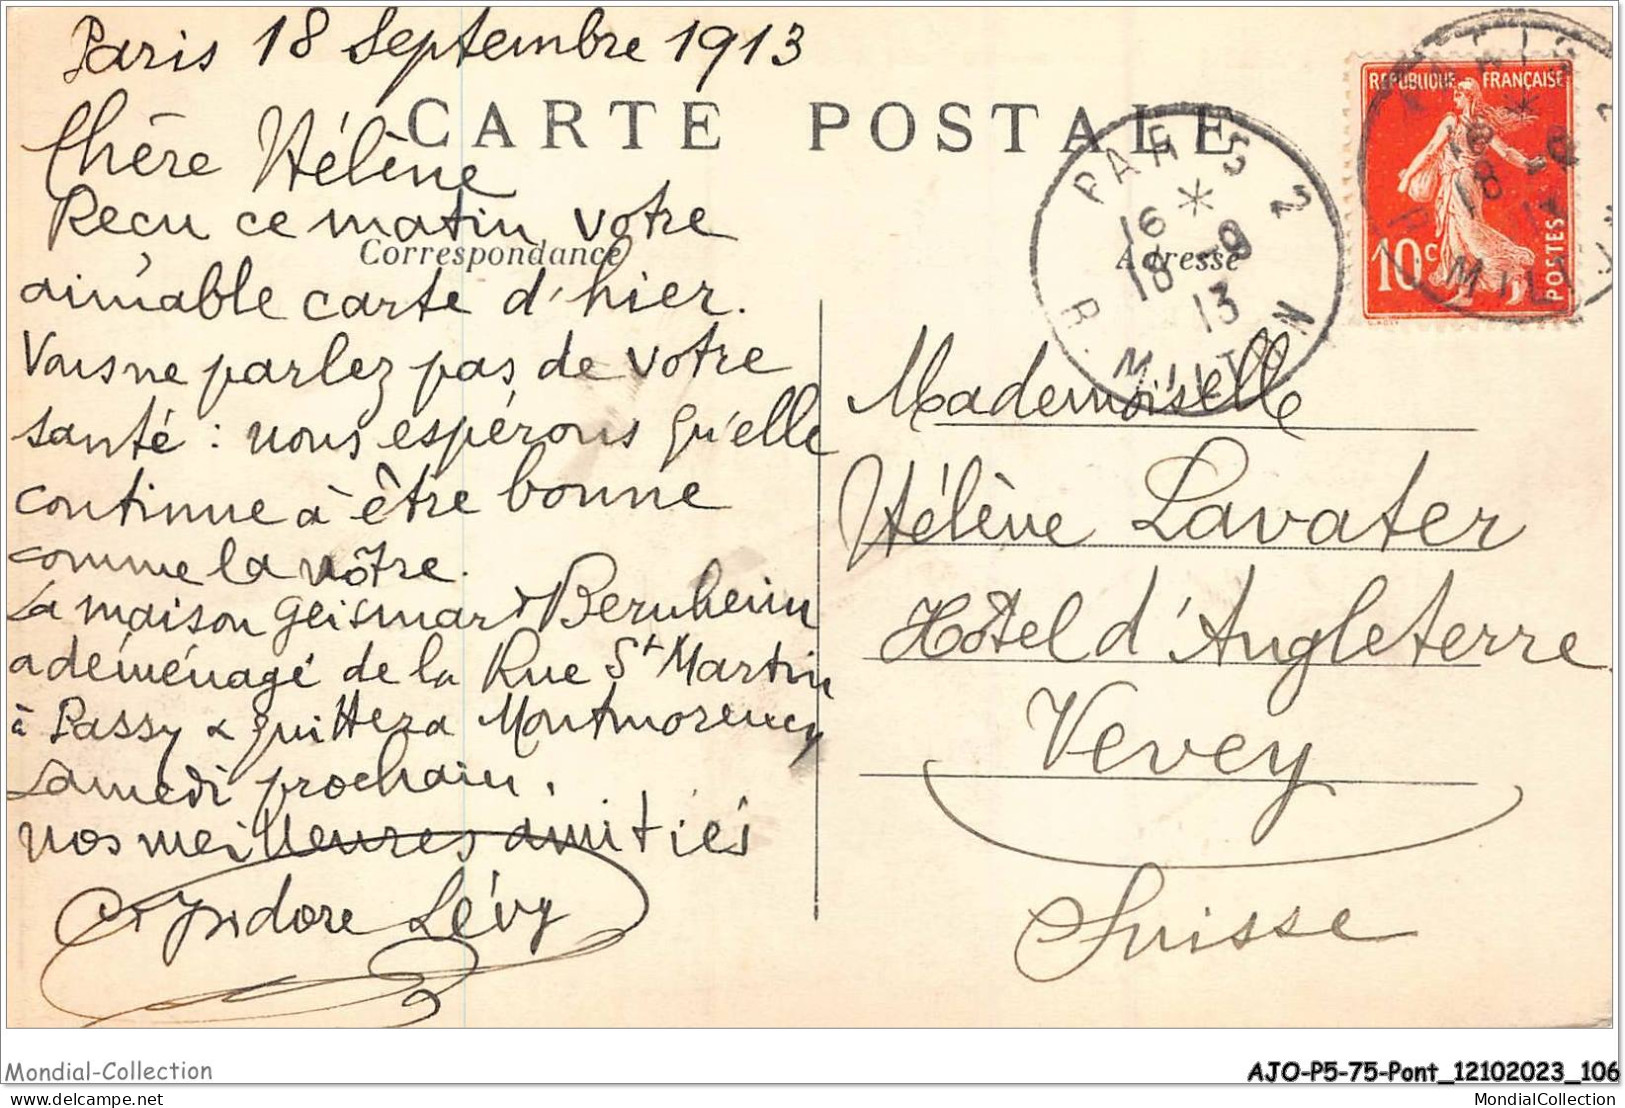 Paris 18 Septembre 1913
CARTE POSTALE
Chère Hélène
Reçu ce matin votre
Correspondance
aimable carte d'hier.
Vous ne parlez pas de votre
santé : nous espérons qu'elle
continue à être bonne
comme la nôtre.
La maison Geismar & Bernheim
a déménagé de la Rue St Martin
à Passy & quittera Montmorency
samedi prochain.
nos meilleures amitiés
Isidore Lévy
REPUBLIQUE FRANÇAISE
10c
POSTES
PARIS 2
16 *
18 - 9
13
R. MILTON
Adresse
Mademoiselle
Hélène Lavater
Hôtel d'Angleterre
Vevey
Suisse
Mondial-Collection
AJO-P5-75-Pont_12102023_106
delcampe.net
MondialCollection